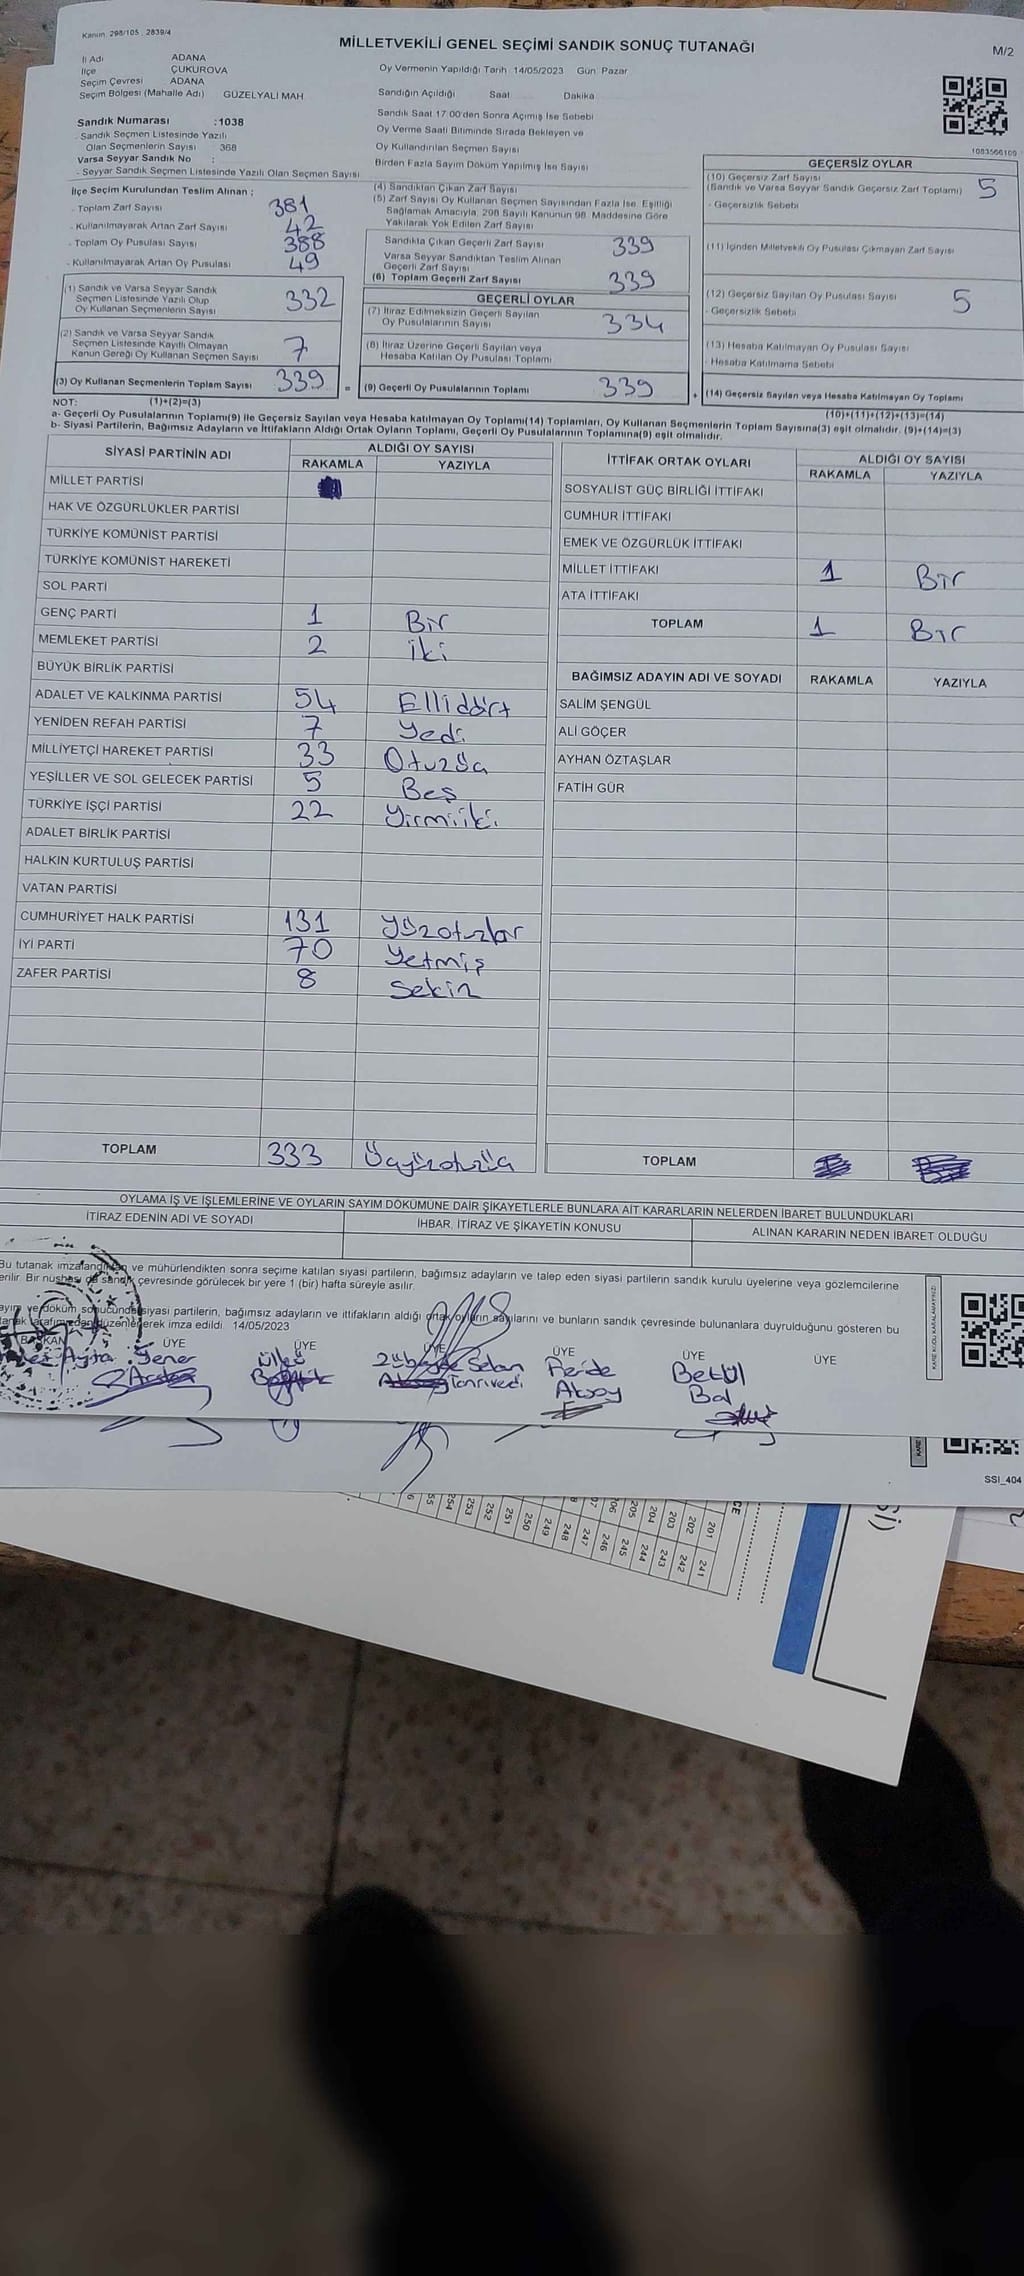 Kanun: 298/105 . 2839/4
MİLLETVEKİLİ GENEL SEÇİMİ SANDIK SONUÇ TUTANAĞI
M/2
İl Adı ADANA
İlçe ÇUKUROVA
Seçim Çevresi ADANA
Seçim Bölgesi (Mahalle Adı) GÜZELYALI MAH
Oy Vermenin Yapıldığı Tarih 14/05/2023 Gün: Pazar
Sandığın Açıldığı Saat Dakika
Sandık Saat 17:00'den Sonra Açımış İse Sebebi
Oy Verme Saati Bitiminde Sırada Bekleyen ve
Oy Kullandırılan Seçmen Sayısı
Birden Fazla Sayım Döküm Yapılmış İse Sayısı
Sandık Numarası : 1038
- Sandık Seçmen Listesinde Yazılı
Olan Seçmenlerin Sayısı 368
Varsa Seyyar Sandık No :
- Seyyar Sandık Seçmen Listesinde Yazılı Olan Seçmen Sayısı
İlçe Seçim Kurulundan Teslim Alınan ;
- Toplam Zarf Sayısı 381
- Kullanılmayarak Artan Zarf Sayısı 42
- Toplam Oy Pusulası Sayısı 388
- Kullanılmayarak Artan Oy Pusulası 49
(1) Sandık ve Varsa Seyyar Sandık
Seçmen Listesinde Yazılı Olup
Oy Kullanan Seçmenlerin Sayısı 332
(2) Sandık ve Varsa Seyyar Sandık
Seçmen Listesinde Kayıtlı Olmayan
Kanun Gereği Oy Kullanan Seçmen Sayısı 7
(3) Oy Kullanan Seçmenlerin Toplam Sayısı 339 =
(4) Sandıktan Çıkan Zarf Sayısı
(5) Zarf Sayısı Oy Kullanan Seçmen Sayısından Fazla İse, Eşitliği
Sağlamak Amacıyla, 298 Sayılı Kanunun 98. Maddesine Göre
Yakılarak Yok Edilen Zarf Sayısı
Sandıkta Çıkan Geçerli Zarf Sayısı 339
Varsa Seyyar Sandıktan Teslim Alınan
Geçerli Zarf Sayısı
(6) Toplam Geçerli Zarf Sayısı 339
GEÇERLİ OYLAR
(7) İtiraz Edilmeksizin Geçerli Sayılan
Oy Pusulalarının Sayısı 334
(8) İtiraz Üzerine Geçerli Sayılan veya
Hesaba Katılan Oy Pusulası Toplamı
(9) Geçerli Oy Pusulalarının Toplamı 339 +
1083566109
GEÇERSİZ OYLAR
(10) Geçersiz Zarf Sayısı
(Sandık ve Varsa Seyyar Sandık Geçersiz Zarf Toplamı) 5
- Geçersizlik Sebebi
(11) İçinden Milletvekili Oy Pusulası Çıkmayan Zarf Sayısı
(12) Geçersiz Sayılan Oy Pusulası Sayısı 5
- Geçersizlik Sebebi
(13) Hesaba Katılmayan Oy Pusulası Sayısı
- Hesaba Katılmama Sebebi
(14) Geçersiz Sayılan veya Hesaba Katılmayan Oy Toplamı
NOT: (1)+(2)=(3) (10)+(11)+(12)+(13)=(14)
a- Geçerli Oy Pusulalarının Toplamı(9) ile Geçersiz Sayılan veya Hesaba katılmayan Oy Toplamı(14) Toplamları, Oy Kullanan Seçmenlerin Toplam Sayısına(3) eşit olmalıdır. (9)+(14)=(3)
b- Siyasi Partilerin, Bağımsız Adayların ve İttifakların Aldığı Ortak Oyların Toplamı, Geçerli Oy Pusulalarının Toplamına(9) eşit olmalıdır.
SİYASİ PARTİNİN ADI ALDIĞI OY SAYISI
RAKAMLA YAZIYLA
MİLLET PARTİSİ
HAK VE ÖZGÜRLÜKLER PARTİSİ
TÜRKİYE KOMÜNİST PARTİSİ
TÜRKİYE KOMÜNİST HAREKETİ
SOL PARTİ
GENÇ PARTİ 1 Bir
MEMLEKET PARTİSİ 2 iki
BÜYÜK BİRLİK PARTİSİ
ADALET VE KALKINMA PARTİSİ 54 Ellidört
YENİDEN REFAH PARTİSİ 7 Yedi
MİLLİYETÇİ HAREKET PARTİSİ 33 Otuzüç
YEŞİLLER VE SOL GELECEK PARTİSİ 5 Beş
TÜRKİYE İŞÇİ PARTİSİ 22 Yirmiiki
ADALET BİRLİK PARTİSİ
HALKIN KURTULUŞ PARTİSİ
VATAN PARTİSİ
CUMHURİYET HALK PARTİSİ 131 Yüzotuzbir
İYİ PARTİ 70 Yetmiş
ZAFER PARTİSİ 8 Sekiz
TOPLAM 333 Üçyüzotuzüç
İTTİFAK ORTAK OYLARI ALDIĞI OY SAYISI
RAKAMLA YAZIYLA
SOSYALİST GÜÇ BİRLİĞİ İTTİFAKI
CUMHUR İTTİFAKI
EMEK VE ÖZGÜRLÜK İTTİFAKI
MİLLET İTTİFAKI 1 Bir
ATA İTTİFAKI
TOPLAM 1 Bir
BAĞIMSIZ ADAYIN ADI VE SOYADI RAKAMLA YAZIYLA
SALİM ŞENGÜL
ALİ GÖÇER
AYHAN ÖZTAŞLAR
FATİH GÜR
TOPLAM
OYLAMA İŞ VE İŞLEMLERİNE VE OYLARIN SAYIM DÖKÜMÜNE DAİR ŞİKAYETLERLE BUNLARA AİT KARARLARIN NELERDEN İBARET BULUNDUKLARI
İTİRAZ EDENİN ADI VE SOYADI İHBAR, İTİRAZ VE ŞİKAYETİN KONUSU ALINAN KARARIN NEDEN İBARET OLDUĞU
Bu tutanak imzalandıktan ve mühürlendikten sonra seçime katılan siyasi partilerin, bağımsız adayların ve talep eden siyasi partilerin sandık kurulu üyelerine veya gözlemcilerine
erilir. Bir nüshası da sandık çevresinde görülecek bir yere 1 (bir) hafta süreyle asılır.
ayım ve döküm sonucunda siyasi partilerin, bağımsız adayların ve ittifakların aldığı ortak oyların sayılarını ve bunların sandık çevresinde bulunanlara duyrulduğunu gösteren bu
tanak tarafımızdan düzenlenerek imza edildi. 14/05/2023
BAŞKAN ÜYE ÜYE ÜYE ÜYE ÜYE ÜYE
Yener Ülkü Selan Feride Betül
Tanrıverdi Aksoy Bal
SSI_404
201 241
202 242
203 243
204 244
205 245
206 246
247
248
249
250
251
252
253
254